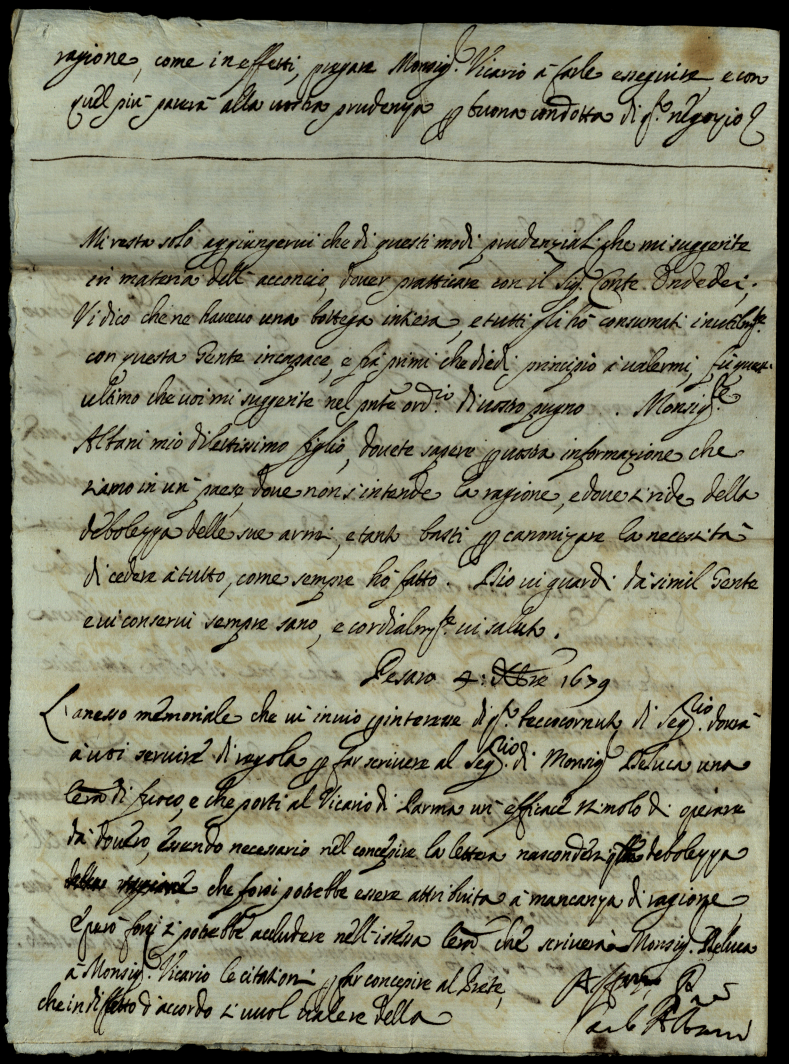 ragione, come in effetti, pregare Monsig.r Vicario à farle esseguire e con
quel più parerà alla vostra prudenza p buona condotta di q.to negozio
Mi resta solo aggiungervi che di questi modi prudenziali che mi suggerite
in materia dell'acconcio, dover pratticare con il Sig.r Conte Ondedei,
Vi dico che ne havevo una bottega intiera, e tutti gli hò consumati inutilm.te
con questa Gente incapace, e frà primi che diedi principio à valermi, fù quest'
ultimo che voi mi suggerite nel pnte ord.rio di vostro pugno. Monsig.re
Albani mio dilettissimo figlio, dovete sapere p vostra informazione che
siamo in un paese, dove non s'intende la ragione, e dove si ride della
debolezza delle sue armi, e tanto basti p canonizare la necessità
di cedere à tutto, come sempre hò fatto. Dio vi guardi da simil Gente
e vi conservi sempre sano, e cordialm.te vi saluto.
Pesaro 4: Xbre 1679
L'anesso memoriale che vi invio p interesse di q.to beccocornuto di Seg.rio dovrà
à voi servire di regola p far scrivere al Seg.rio di Monsig.r DeLuca una
lera di fuoco, e che porti al Vicario di Parma un efficace stimolo di operare
da dovero, quando necessario nel concepire la lettera nascondere debolezza
che forsi potrebbe essere attribuita à mancanza di ragione
E però forsi si potrebbe accludere nell'istessa lera che scriverà Monsig.r DeLuca
à Monsig.r Vicario le citationi p far concepire al Prete,
che in difetto d'accordo si vuol valere della
Aff.mo Pre
Carlo Albani